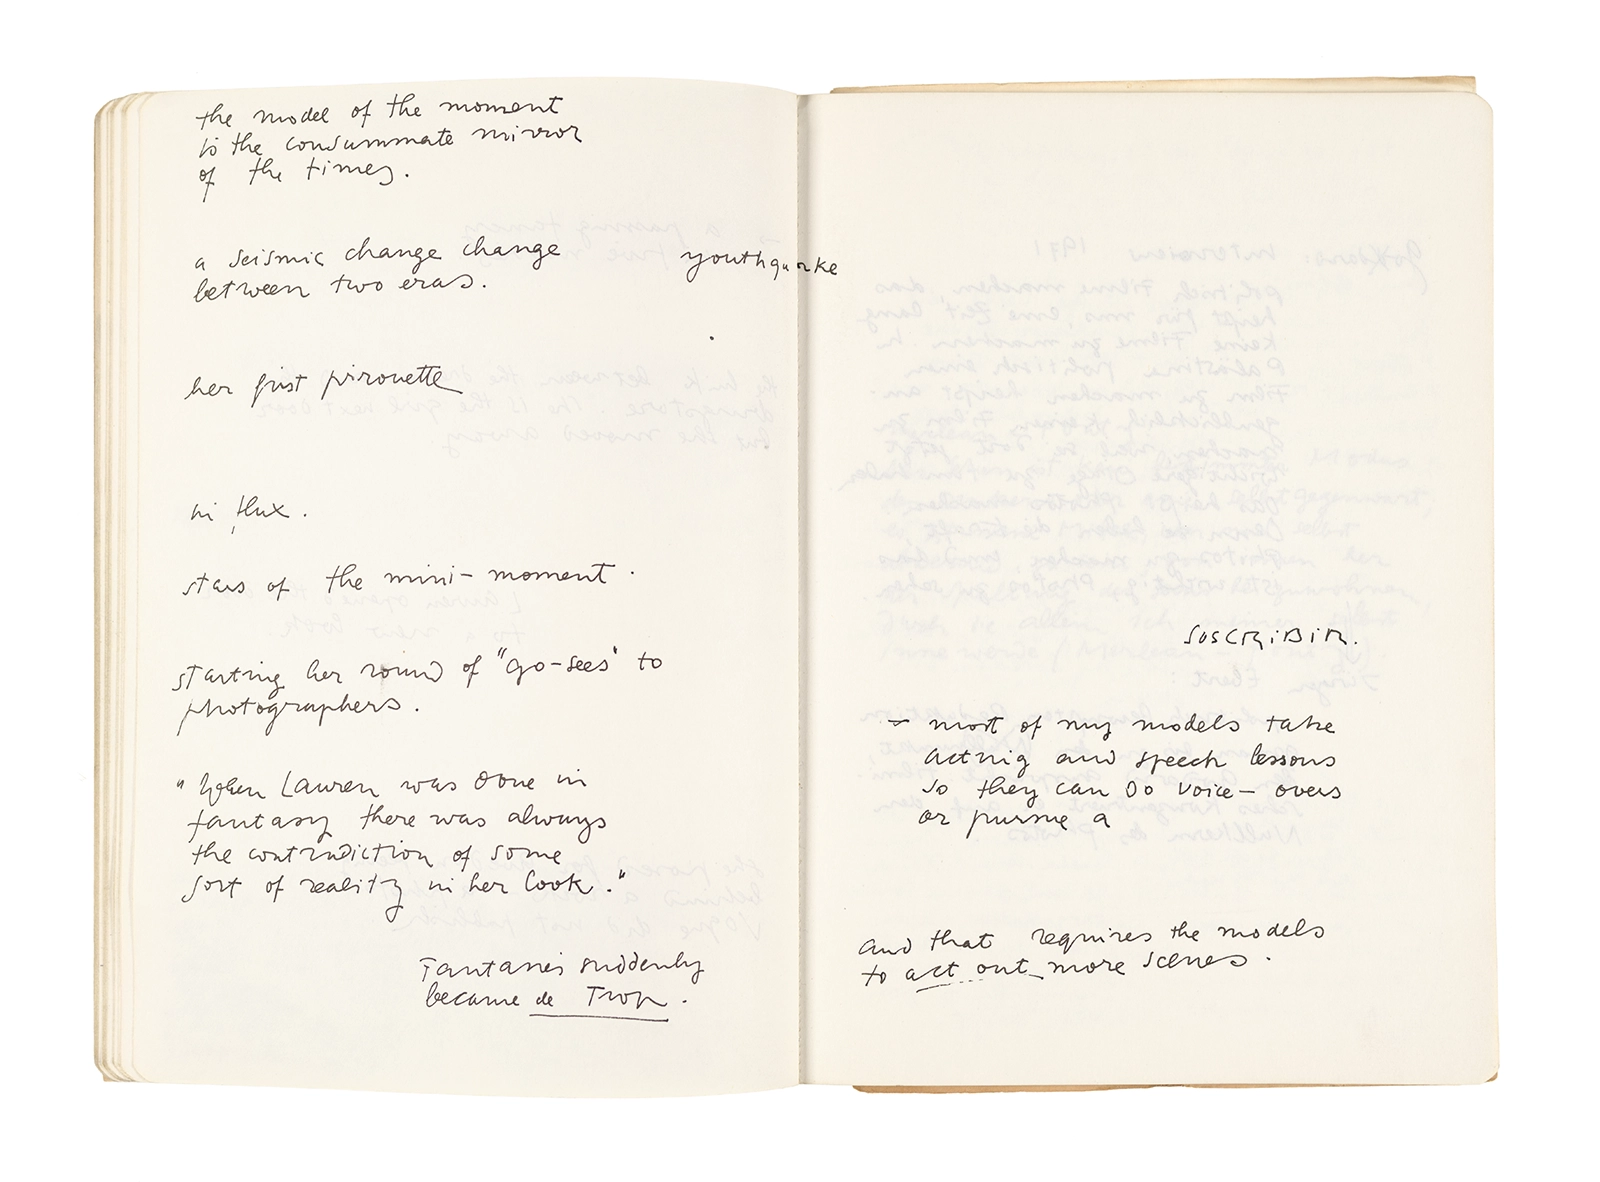 the model of the moment
is the consummate mirror
of the times.
a seismic change change
between two eras.
youthquake
her first pirouette
in flux.
stars of the mini-moment.
starting her round of "go-sees" to
photographers.
"When Lauren was done in
fantasy there was always
the contradiction of some
sort of reality in her look."
Fantasies suddenly
became de Trop.
SUSCRIBIR.
- most of my models take
acting and speech lessons
so they can do voice-overs
or pursue a
and that requires the models
to act out more scenes.